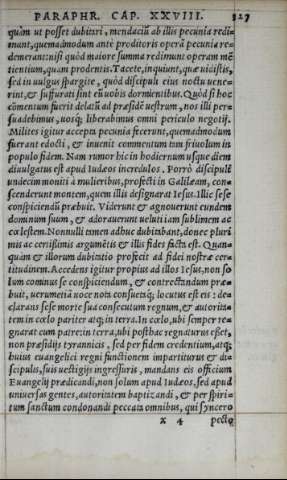 PARAPHR. CAP. XXVIII. 327
quàm ut posset dubitari, mendacíũ ab illis pecunia redi=
munt, quemadmodum antè proditoris operã pecunia re=
demerant: nisi quòd maiore summa redimunt operam mẽ
tientium, quàm prodentis. Tacete, inquiunt, quæ uidistis,
sed in uulgus spargite, quòd discipuli eius noctu uene=
rint, & suffurati sint eũ uobis dormientibus. Quòd si hoc
cõmentum fuerit delatũ ad præsidẽ uestrum, nos illi per=
suadebimus, uosq; liberabimus omni periculo negotij.
Milites igitur accepta pecunia fecerunt, quemadmodum
fuerant edocti, & inuenit commentum tam friuolum in
populo fidem. Nam rumor hic in hodiernum usque diem
diuulgatus est apud Iudæos incredulos. Porrò discipuli
undecim moniti à mulieribus, profecti in Galilæam, con=
scenderunt montem, quem illis designarat Iesus. Illic se se
conspiciendũ præbuit. Viderunt & agnouerunt eundem
dominum suum, & adorauerunt ueluti iam sublimem ac
cælestem. Nonnulli tamen adhuc dubitabant, donec pluri
mis ac certissimis argumẽtis & illis fides facta est. Quan=
quàm & illorum dubitatio proficit ad fidei nostræ cer=
titudinem. Accedens igitur propius ad illos Iesus, non so
lum cominus se conspiciendum, & contrectandum præ=
buit, uerumetiã uoce nota consuetáq; locutus est eis: de=
clarans sese morte sua consecutum regnum, & autorita=
tem in cœlo pariter atq; in terra. In cœlo, ubi semper re=
gnarat cum patre: in terra, ubi posthac regnaturus esset,
non præsidijs tyrannicis, sed per fidem credentium, atq;
huius euangelici regni functionem impartiturus & di=
scipulis, suis uestigijs ingressuris, mandans eis officium
Euangelij prædicandi, non solum apud Iudæos, sed apud
uniuersas gentes, autoritatem baptizandi, & per spiri=
tum sanctum condonandi peccata omnibus, qui syncero
x 4 pecto